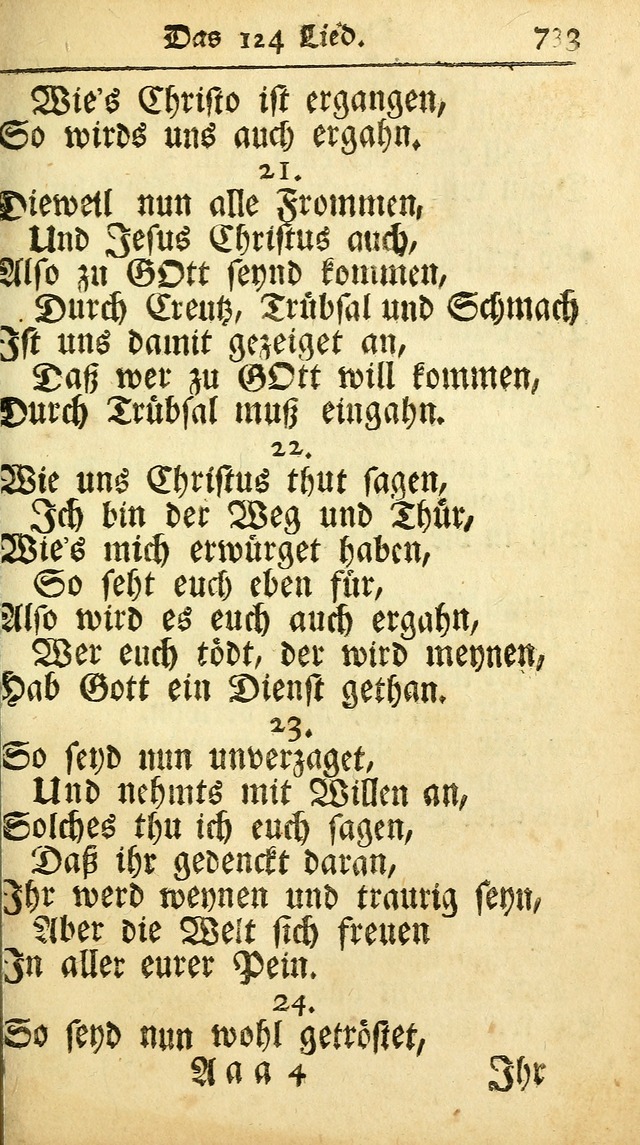 Das 124 Lied. 733
Wie's Christo ist ergangen,
So wirds uns auch ergahn.
21.
Dieweil nun alle Frommen,
Und Jesus Christus auch,
Also zu GOtt seynd kommen,
Durch Creutz, Trübsal und Schmach
Ist uns damit gezeiget an,
Daß wer zu GOtt will kommen,
Durch Trübsal muß eingahn.
22.
Wie uns Christus thut sagen,
Ich bin der Weg und Thür,
Wie's mich erwürget haben,
So seht euch eben für,
Also wird es euch auch ergahn,
Wer euch tödt, der wird meynen,
Hab Gott ein Dienst gethan.
23.
So seyd nun unverzaget,
Und nehmts mit Willen an,
Solches thu ich euch sagen,
Daß ihr gedenckt daran,
Ihr werd weynen und traurig seyn,
Aber die Welt sich freuen
In aller eurer Pein.
24.
So seyd nun wohl getröstet,
Aaa 4 Ihr